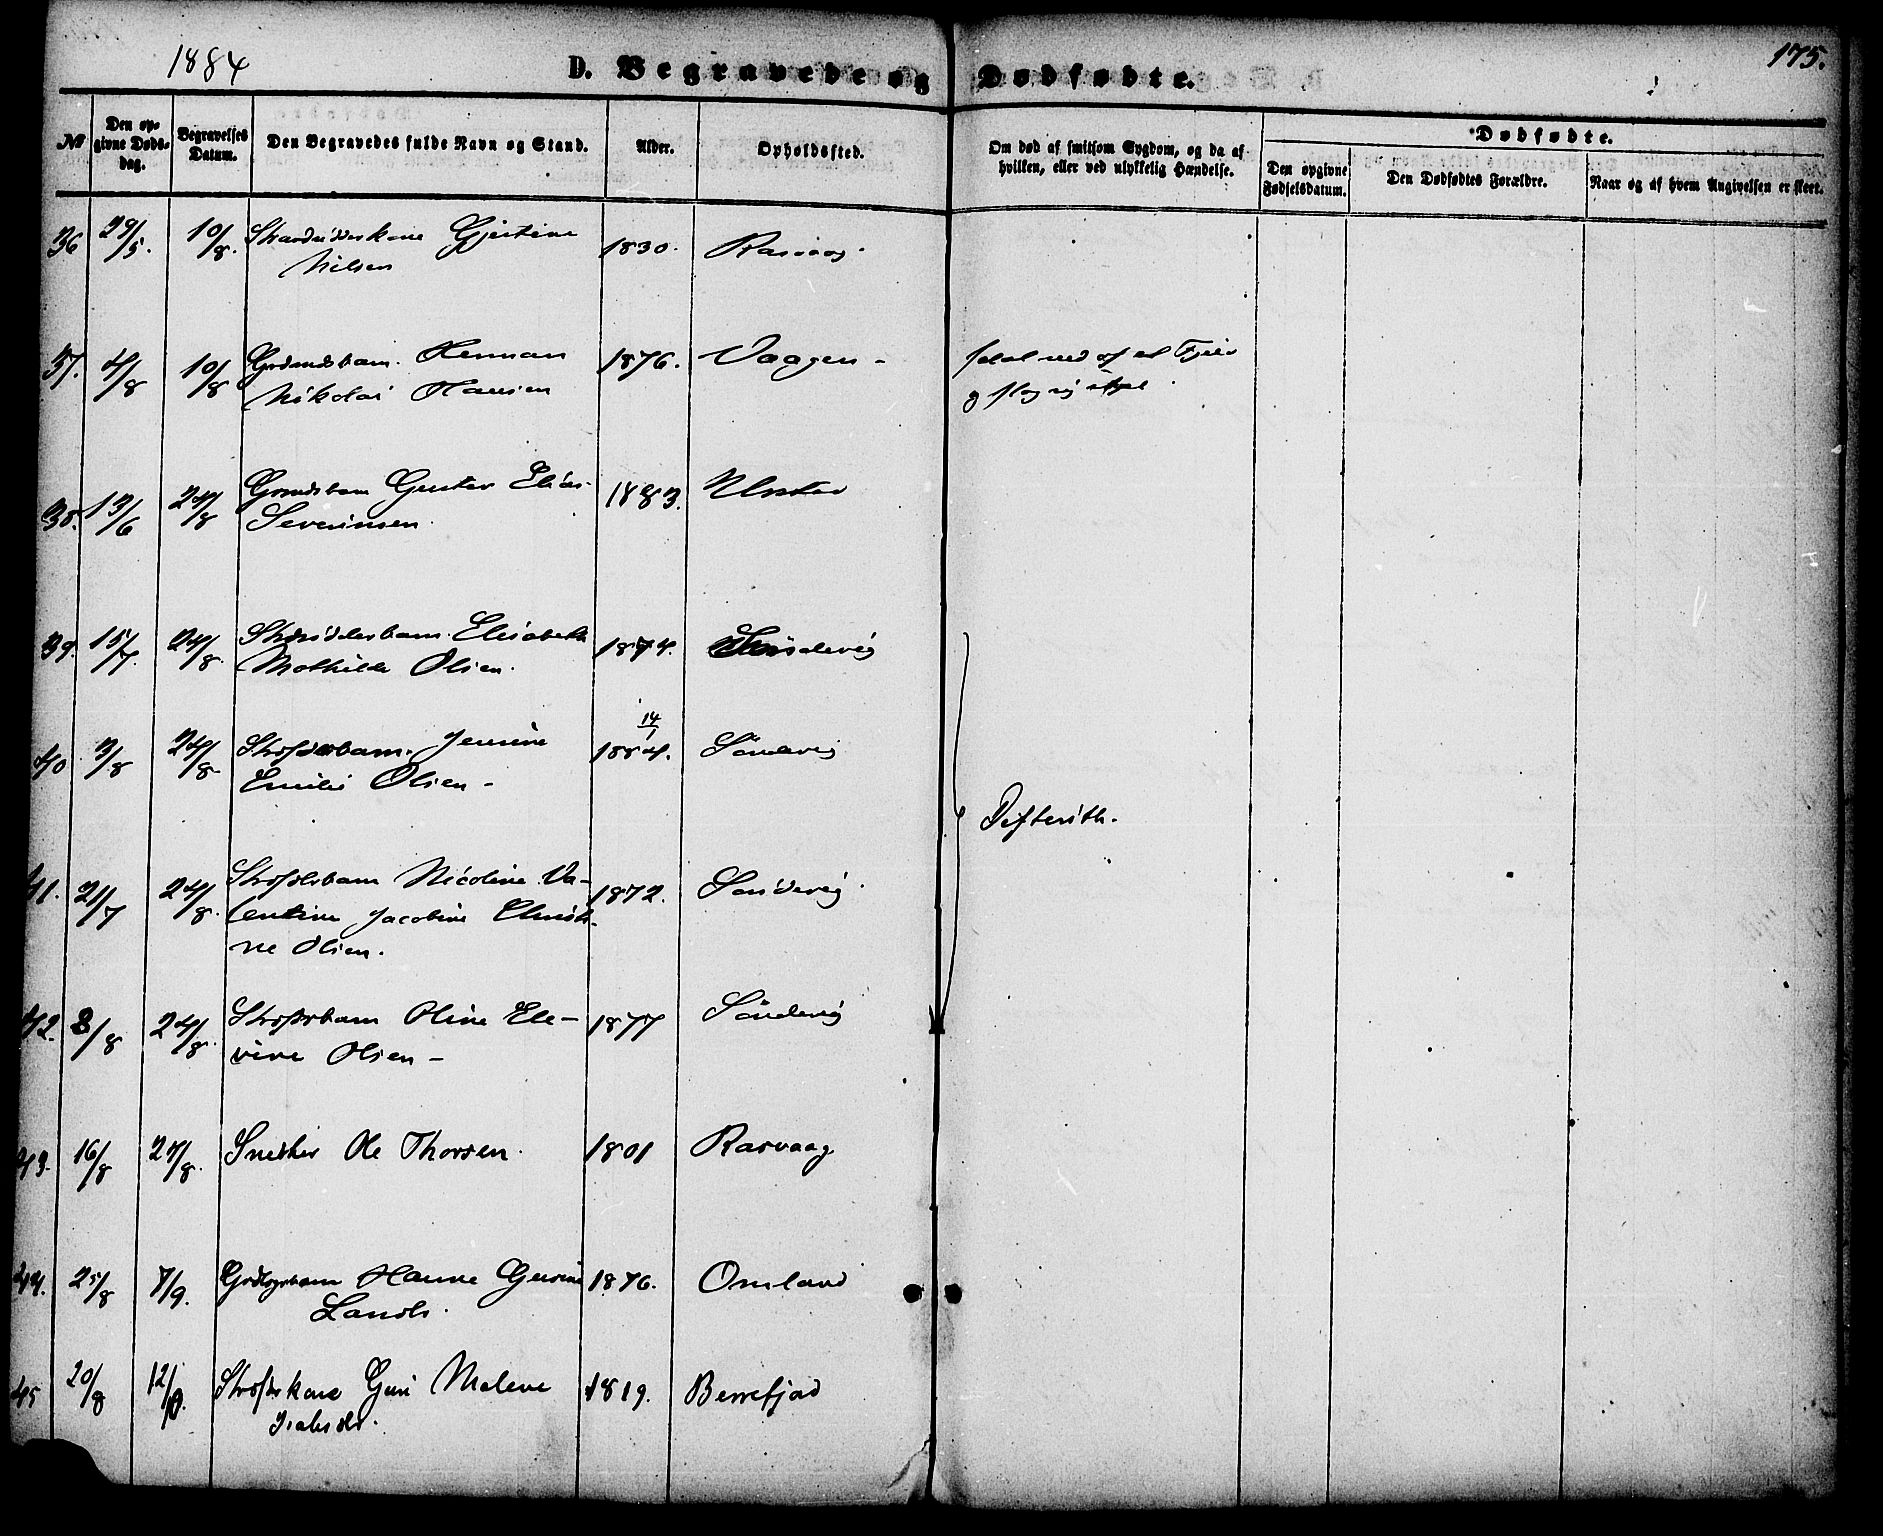 1884
D. Begravede og Dødfødte.
175.
No
Den op-
givne Døds-
dag.
Begravelses
Datum.
Den Begravedes fulde Navn og Stand.
Alder.
Opholdssted.
Om død af smitsom Sygdom, og da af
hvilken, eller ved ulykkelig Hændelse.
Dødfødte.
Den opgivne
Fødselsdatum.
Den Dødfødtes Forældre.
Naar og af hvem Angivelsen er skeet.
36 29/5. 10/8. Strandsidderkone Gjertine 1830. Rasvaag.
Nilsen
37. 4/8 10/8 Herman 1876. Vaagen - faldt ned af et Fjeld
Nikolai Hansen og slog sig ihjel.
38. 13/6 24/8 Gustav Elias 1883.
Severinsen.
39. 15/7. 24/8. Elisabeth 1874. Søndevig
Mathilde Olsen.
40 3/8 24/8 Jensine 14/1 1884. Søndevig
Emilie Olsen -
Difterith.
41. 21/7 24/8. Nicoline Va- 1872. Søndevig.
lentine Jacobine Christi-
ne Olsen.
42. 8/8 24/8. Oline Ele- 1877 Søndevig
vine Olsen -
43. 16/8 27/8. Snedker Ole Thorsen. 1801 Rasvaag
44. 25/8 7/9. Hanne Gurine 1876. Omland
45 20/8 12/9. Guri Malene 1819. Berrefjord